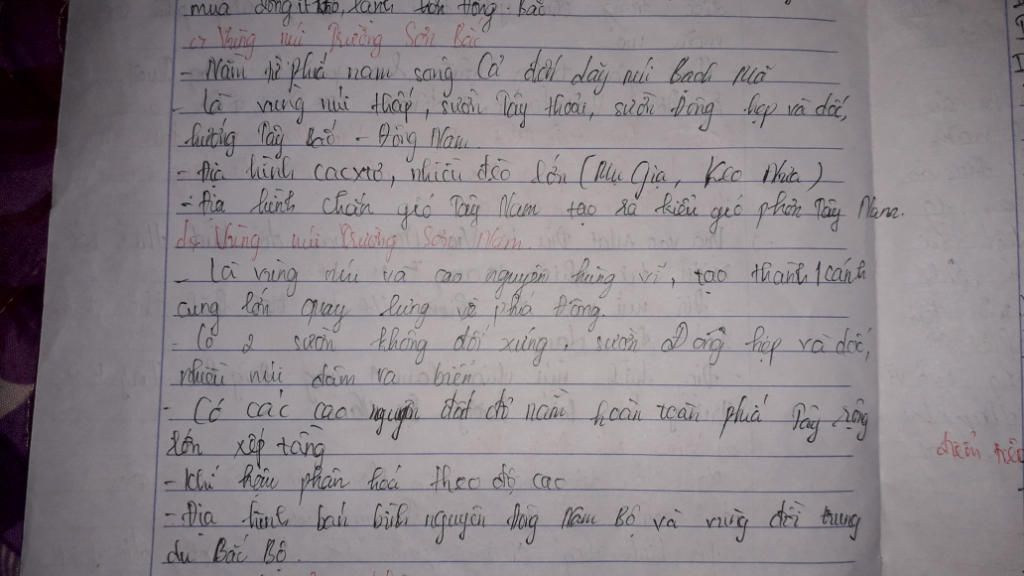 mưa đông ít khô, lạnh hơn Đông Bắc.
c, Vùng núi Trường Sơn Bắc
- Nằm từ phía nam sông Cả đến dãy núi Bạch Mã
- Là vùng núi thấp, sườn Tây thoải, sườn Đông hẹp và dốc,
hướng Tây Bắc - Đông Nam.
- Địa hình cacxtơ, nhiều đèo lớn (Mụ Giạ, Keo Nưa)
- Địa hình chắn gió Tây Nam tạo ra hiệu gió phơn Tây Nam.
d, Vùng núi Trường Sơn Nam.
- Là vùng núi và cao nguyên hùng vĩ, tạo thành 1 cánh
cung lớn quay lưng về phía Đông.
- Có 2 sườn không đối xứng. sườn Đông hẹp và dốc,
nhiều núi đâm ra biển
- Có các cao nguyên đất đỏ nằm hoàn toàn phía Tây rộng
lớn xếp tầng
- Khí hậu phân hoá theo độ cao
- Địa hình bán bình nguyên Đông Nam Bộ và vùng đồi trung
du Bắc Bộ.